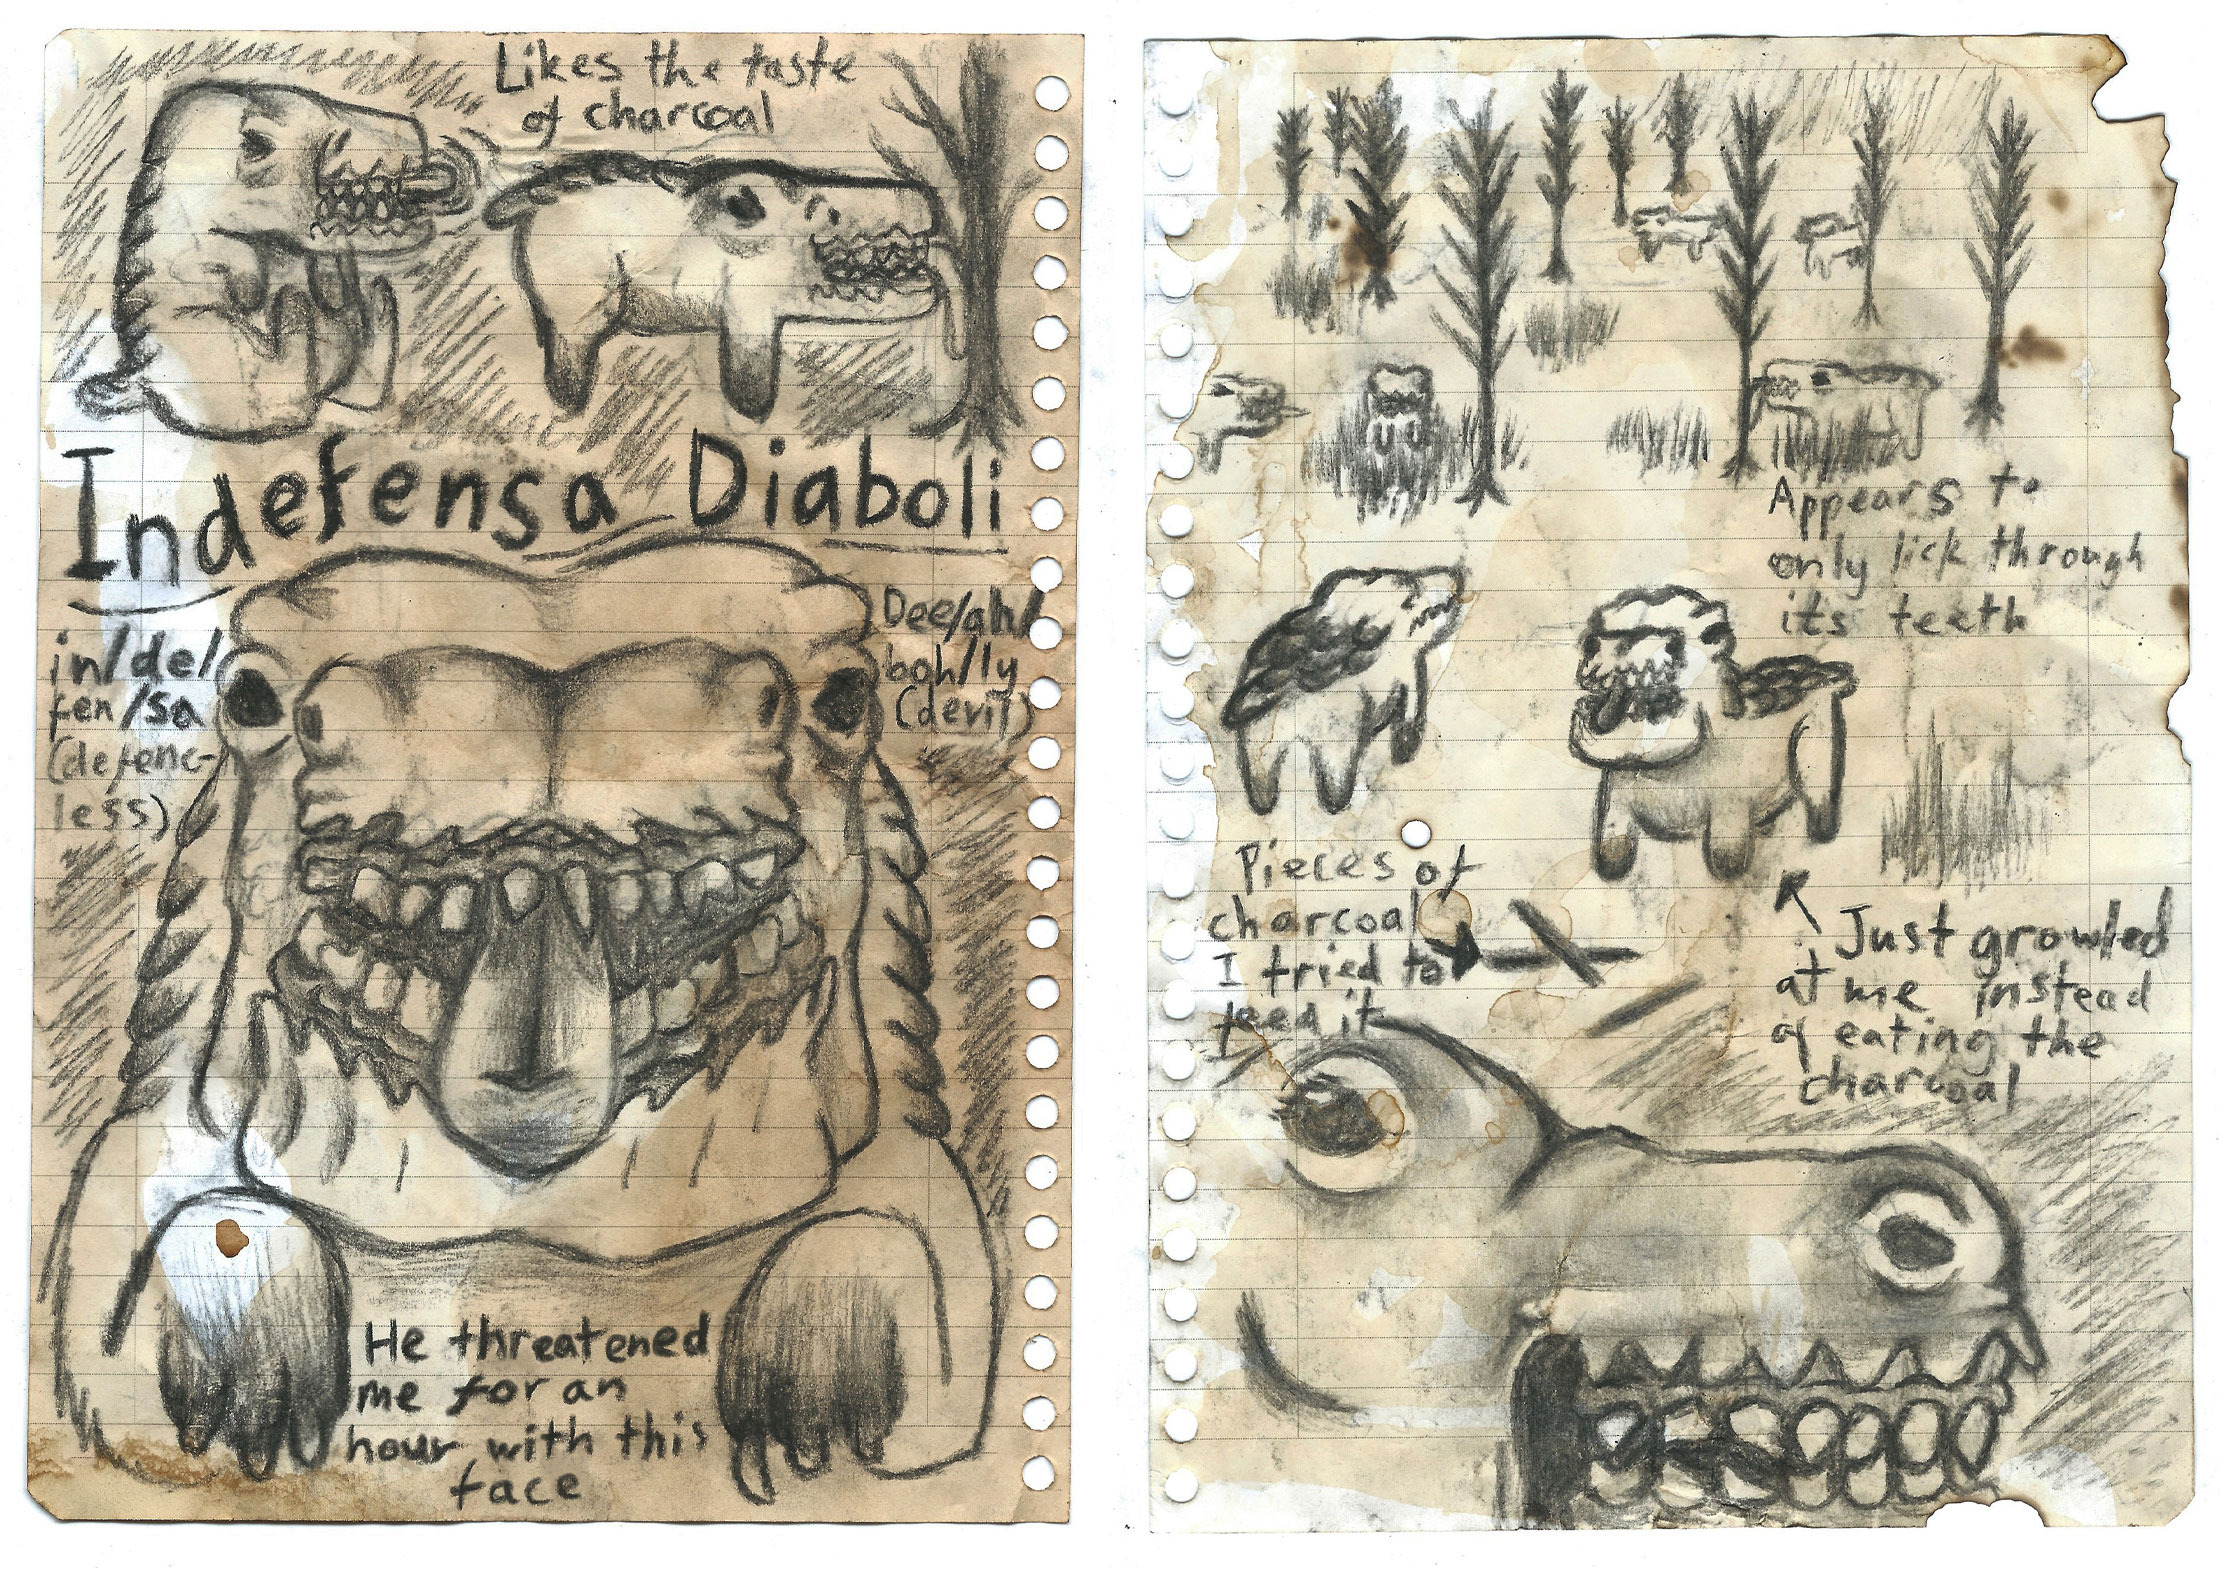 Likes the taste
of charcoal
Indefensa Diaboli
in/de/
fen/sa
(defenc-
less)
Dee/ah/
boh/ly
(devil)
He threatened
me for an
hour with this
face
Appears to
only lick through
its teeth
Pieces of
charcoal
I tried to
feed it
Just growled
at me instead
of eating the
charcoal